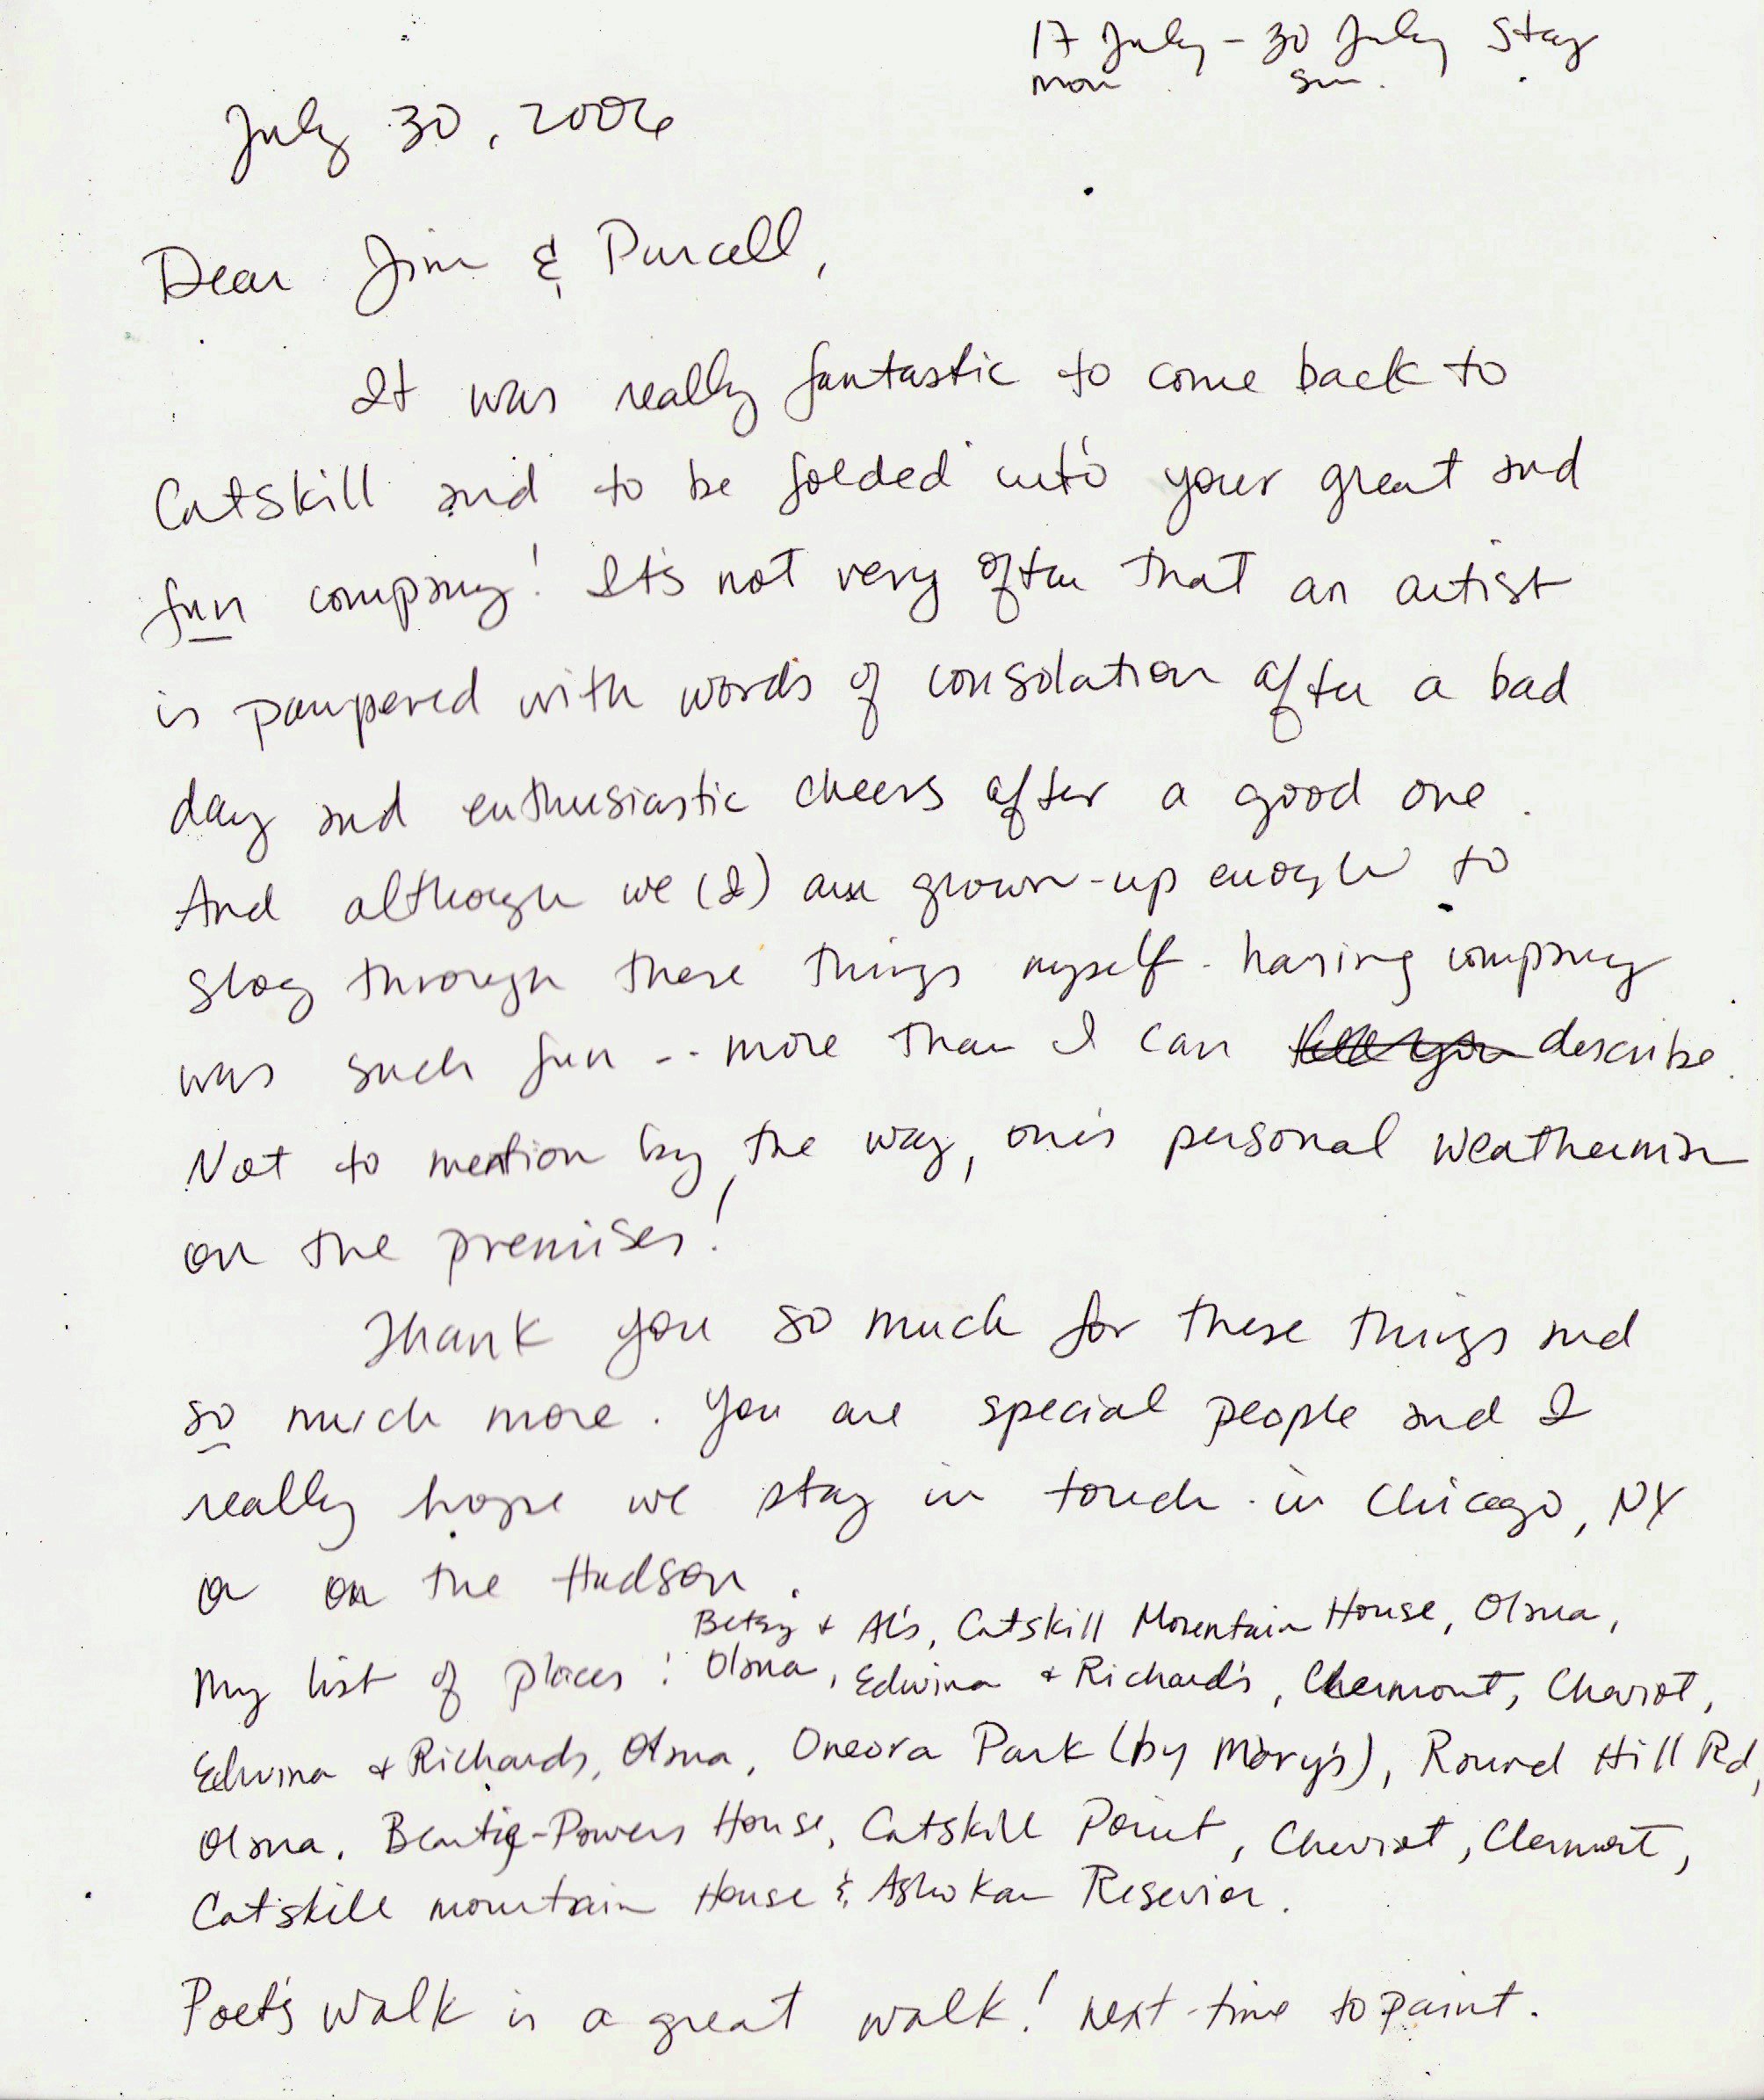 17 July - 30 July Stay
mon sun.
July 30, 2006
Dear Jim & Purcell,
It was really fantastic to come back to
Catskill and to be folded into your great and
fun company! It's not very often that an artist
is pampered with words of consolation after a bad
day and enthusiastic cheers after a good one.
And although we (I) am grown-up enough to
slog through these things myself - having company
was such fun -- more than I can tell you describe.
Not to mention by the way, one's personal weatherman
on the premises!
Thank you so much for these things and
so much more. You are special people and I
really hope we stay in touch - in Chicago, NY
or on the Hudson.
Betsy + Al's, Catskill Mountain House, Olana,
My list of places: Olana, Edwina + Richard's, Clermont, Cheviot,
Edwina + Richards, Olana, Oneora Park (by Mary's), Round Hill Rd,
Olana, Beattie-Powers House, Catskill Point, Cheviot, Clermont,
Catskill mountain House & Ashokan Resevior.
Poet's Walk is a great walk! next time to paint.